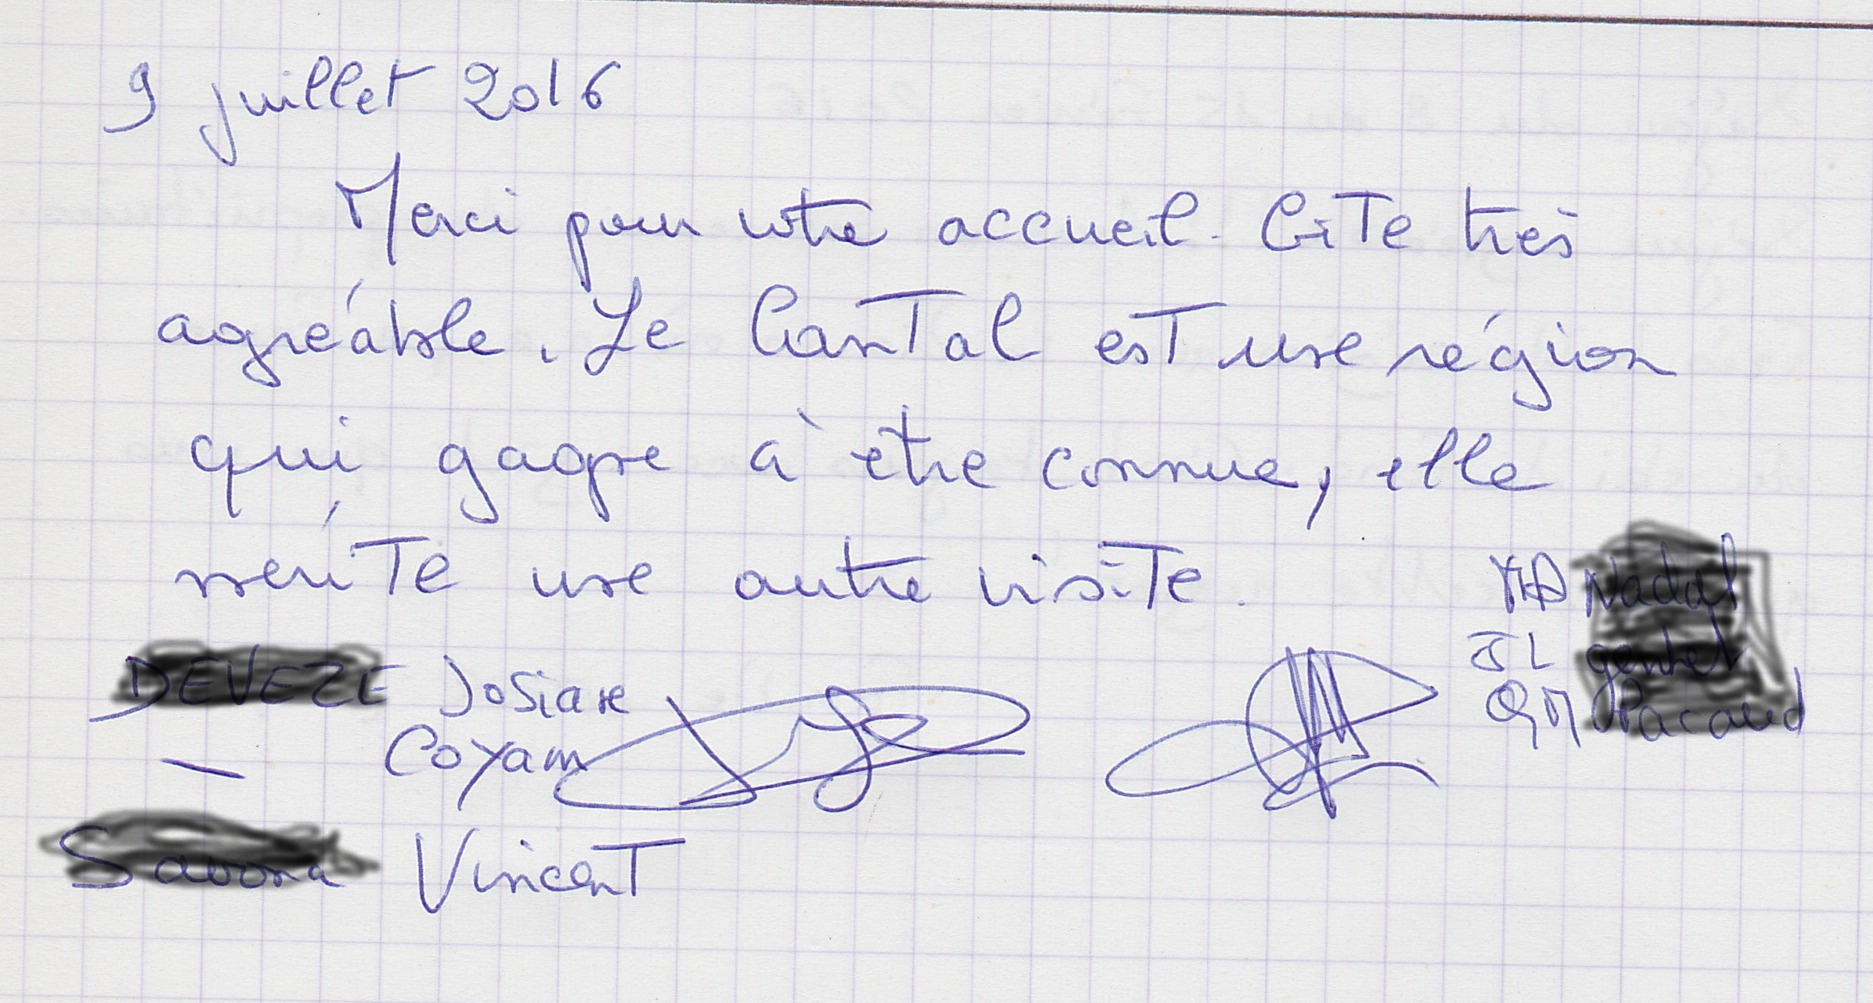 9 juillet 2016
Merci pour votre accueil. GiTe très
agréable. Le CanTal esT une région
qui gagne à être connue, elle
mériTe une autre visiTe.
MD
Josiane JL
— Coyam GM
VincenT